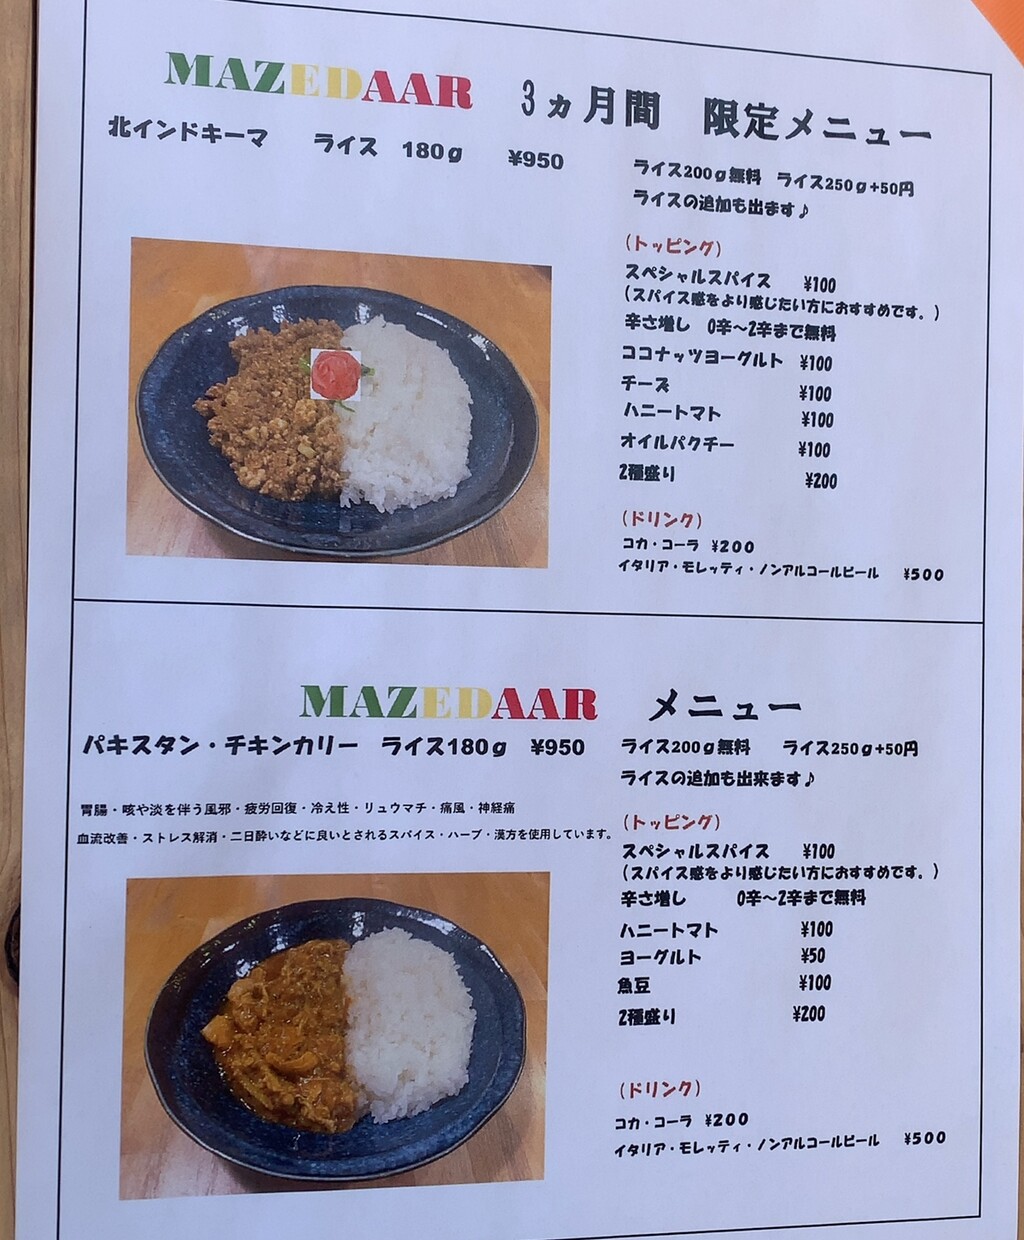 MAZEDAAR 3ヵ月間 限定メニュー
北インドキーマ ライス 180g ¥950
ライス200g無料 ライス250g+50円
ライスの追加も出ます♪
(トッピング)
スペシャルスパイス ¥100
(スパイス感をより感じたい方におすすめです。)
辛さ増し 0辛〜2辛まで無料
ココナッツヨーグルト ¥100
チーズ ¥100
ハニートマト ¥100
オイルパクチー ¥100
2種盛り ¥200
(ドリンク)
コカ・コーラ ¥200
イタリア・モレッティ・ノンアルコールビール ¥500
MAZEDAAR メニュー
パキスタン・チキンカリー ライス180g ¥950
胃腸・咳や淡を伴う風邪・疲労回復・冷え性・リュウマチ・痛風・神経痛
血流改善・ストレス解消・二日酔いなどに良いとされるスパイス・ハーブ・漢方を使用しています。
ライス200g無料 ライス250g+50円
ライスの追加も出来ます♪
(トッピング)
スペシャルスパイス ¥100
(スパイス感をより感じたい方におすすめです。)
辛さ増し 0辛〜2辛まで無料
ハニートマト ¥100
ヨーグルト ¥50
魚豆 ¥100
2種盛り ¥200
(ドリンク)
コカ・コーラ ¥200
イタリア・モレッティ・ノンアルコールビール ¥500